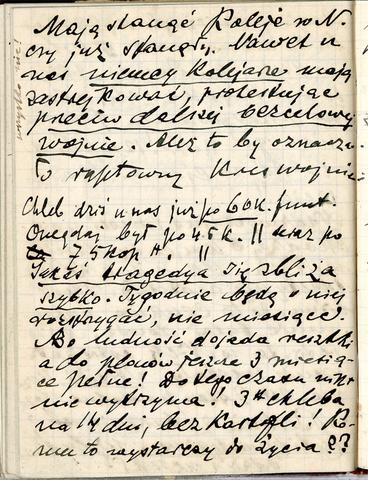 Mają stanąć Koleje w N.
czy już stanęły. Nawet u
nas niemcy Kolejarze mają
zastrejkować, protestując
przeciw dalszej bezcelowej
wojnie. Ależ to by oznacza-
ło raptowny Kres wojnie
Chleb dziś u nas już po 60 k. funt.
Onegdaj był po 45 k. || teraz po
75 kop ||
Jakaś tragedya się zbliża
szybko. Tygodnie będą o niej
rozstrzygać, nie miesiące.
Bo ludność dojada resztki
a do plonów jeszcze 3 miesią-
ce pełne! Do tego czasu nikt
nie wytrzyma! 3 # chleba
na 14 dni, bez Kartofli! Ko-
mu to wystarczy do życia ??